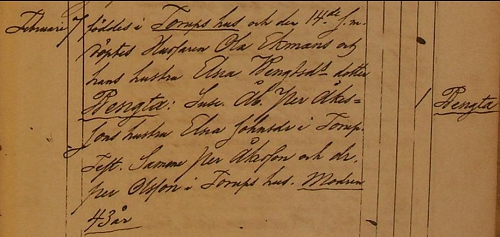 Februari 7 föddes i Torups hus och den 14de s.m.
döptes Husaren Ola Ekmans och
hans hustru Elna Bengtsds dotter
Bengta: Susc. Åb. Per Åkes-
sons hustru Elna Johnsdr i Torup.
Test. Samme Per Åkesson och dr.
per Olsson i Torups hus. Modren
43 år
1 Bengta